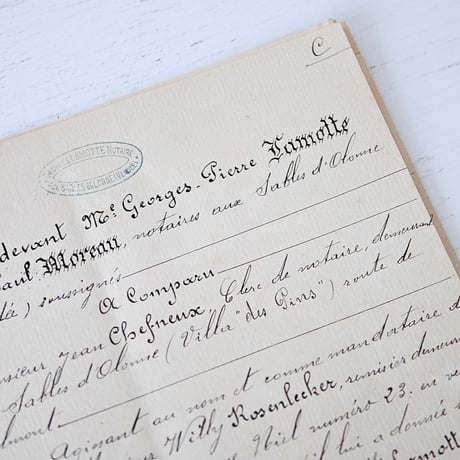 C
GEORGES LAMOTTE NOTAIRE
devant Me Georges-Pierre Lamotte
Paul Moreau, notaires aux Sables d'Olonne
dée) soussignés
A Comparu
nsieur Jean Chefneux, Clerc de notaire, demeurant
Sables d'Olonne (Villa "des Pins") route de
lmont.
Agissant au nom et comme mandataire d
Willy Rosenlecker, remisier demeura
Niel numéro 23, en ve
il lui a donnée s
Lamott